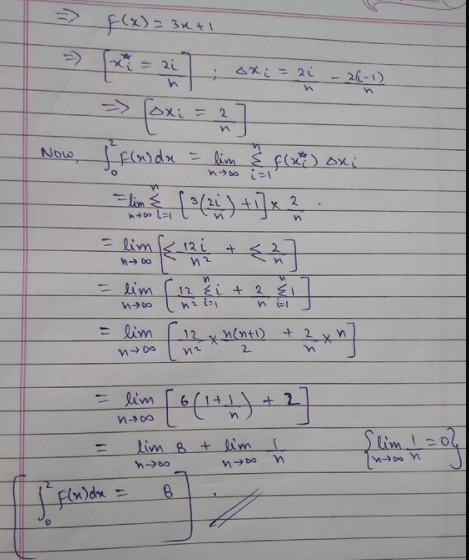 ⇒ f(x) = 3x+1
⇒ [x*i = 2i/n] ; Δxi = 2i/n - 2(i-1)/n
⇒ [Δxi = 2/n]
Now, ∫₀² f(x)dx = lim n→∞ Σ i=1 n f(x*i) Δxi
= lim n→∞ Σ i=1 n [3(2i/n) + 1] × 2/n .
= lim n→∞ [Σ 12i/n² + Σ 2/n]
= lim n→∞ [12/n² Σ i=1 n i + 2/n Σ i=1 n 1]
= lim n→∞ [12/n² × n(n+1)/2 + 2/n × n]
= lim n→∞ [6(1+1/n) + 2]
= lim n→∞ 8 + lim n→∞ 1/n {lim n→∞ 1/n = 0}
[∫₀² f(x)dx = 8] .